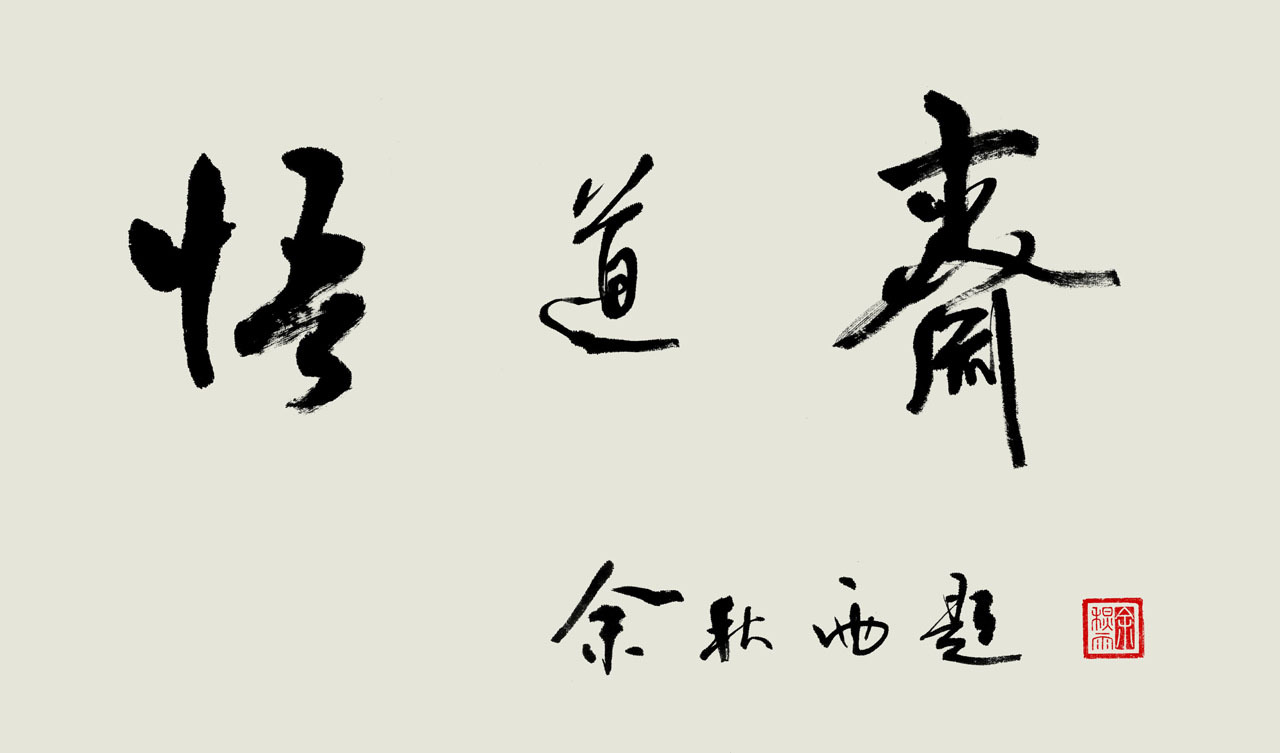 悟道斋
余秋雨题
余秋雨